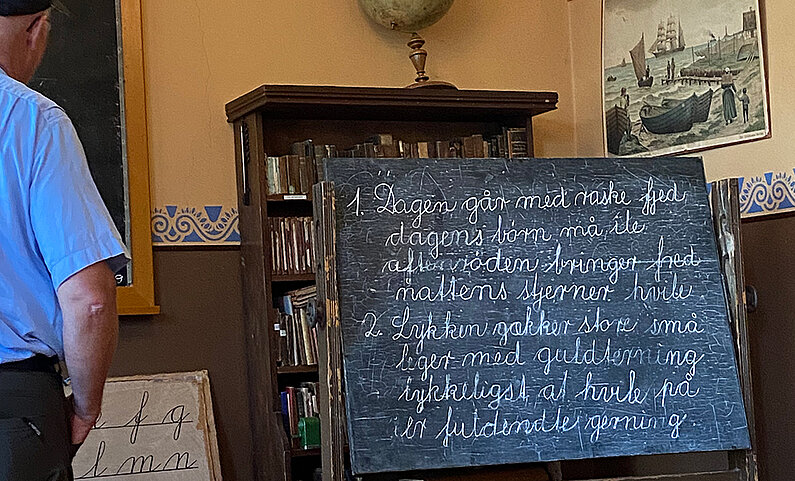 1. Dagen går med raske fjed
dagens børn må ile
aftenrøden bringer fred
nattens stjerner hvile
2. Lykken gækker store små
leger med guldterning
lykkeligst at hvile på
er fuldendte gerning.
f g
l m n